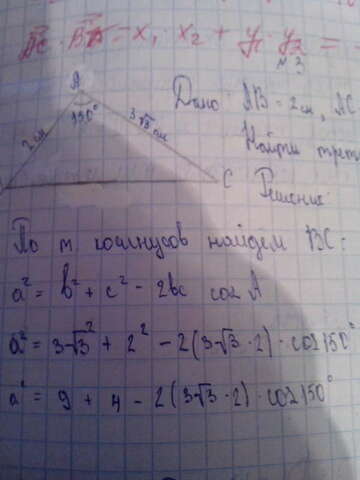 AC · BD = x₁ · x₂ + y₁ · y₂ =
N 3
A
150°
2 см
3√3 см
C
Дано: AB = 2 см, AC
Найти трет
Решение
По т. косинусов найдем BC:
a² = b² + c² - 2bc cos A
a² = 3√3² + 2² - 2(3√3 · 2) · cos 150°
a² = 9 + 4 - 2(3√3 · 2) · cos 150°